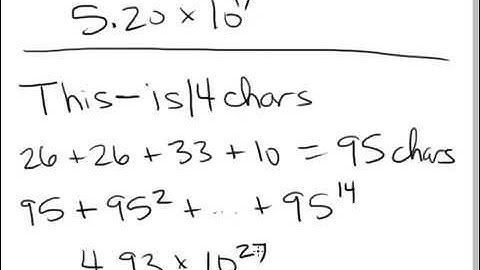 5.20 × 10¹¹
This-is14chars
26 + 26 + 33 + 10 = 95 chars
95 + 95² + ... + 95¹⁴
4.93 × 10²⁷